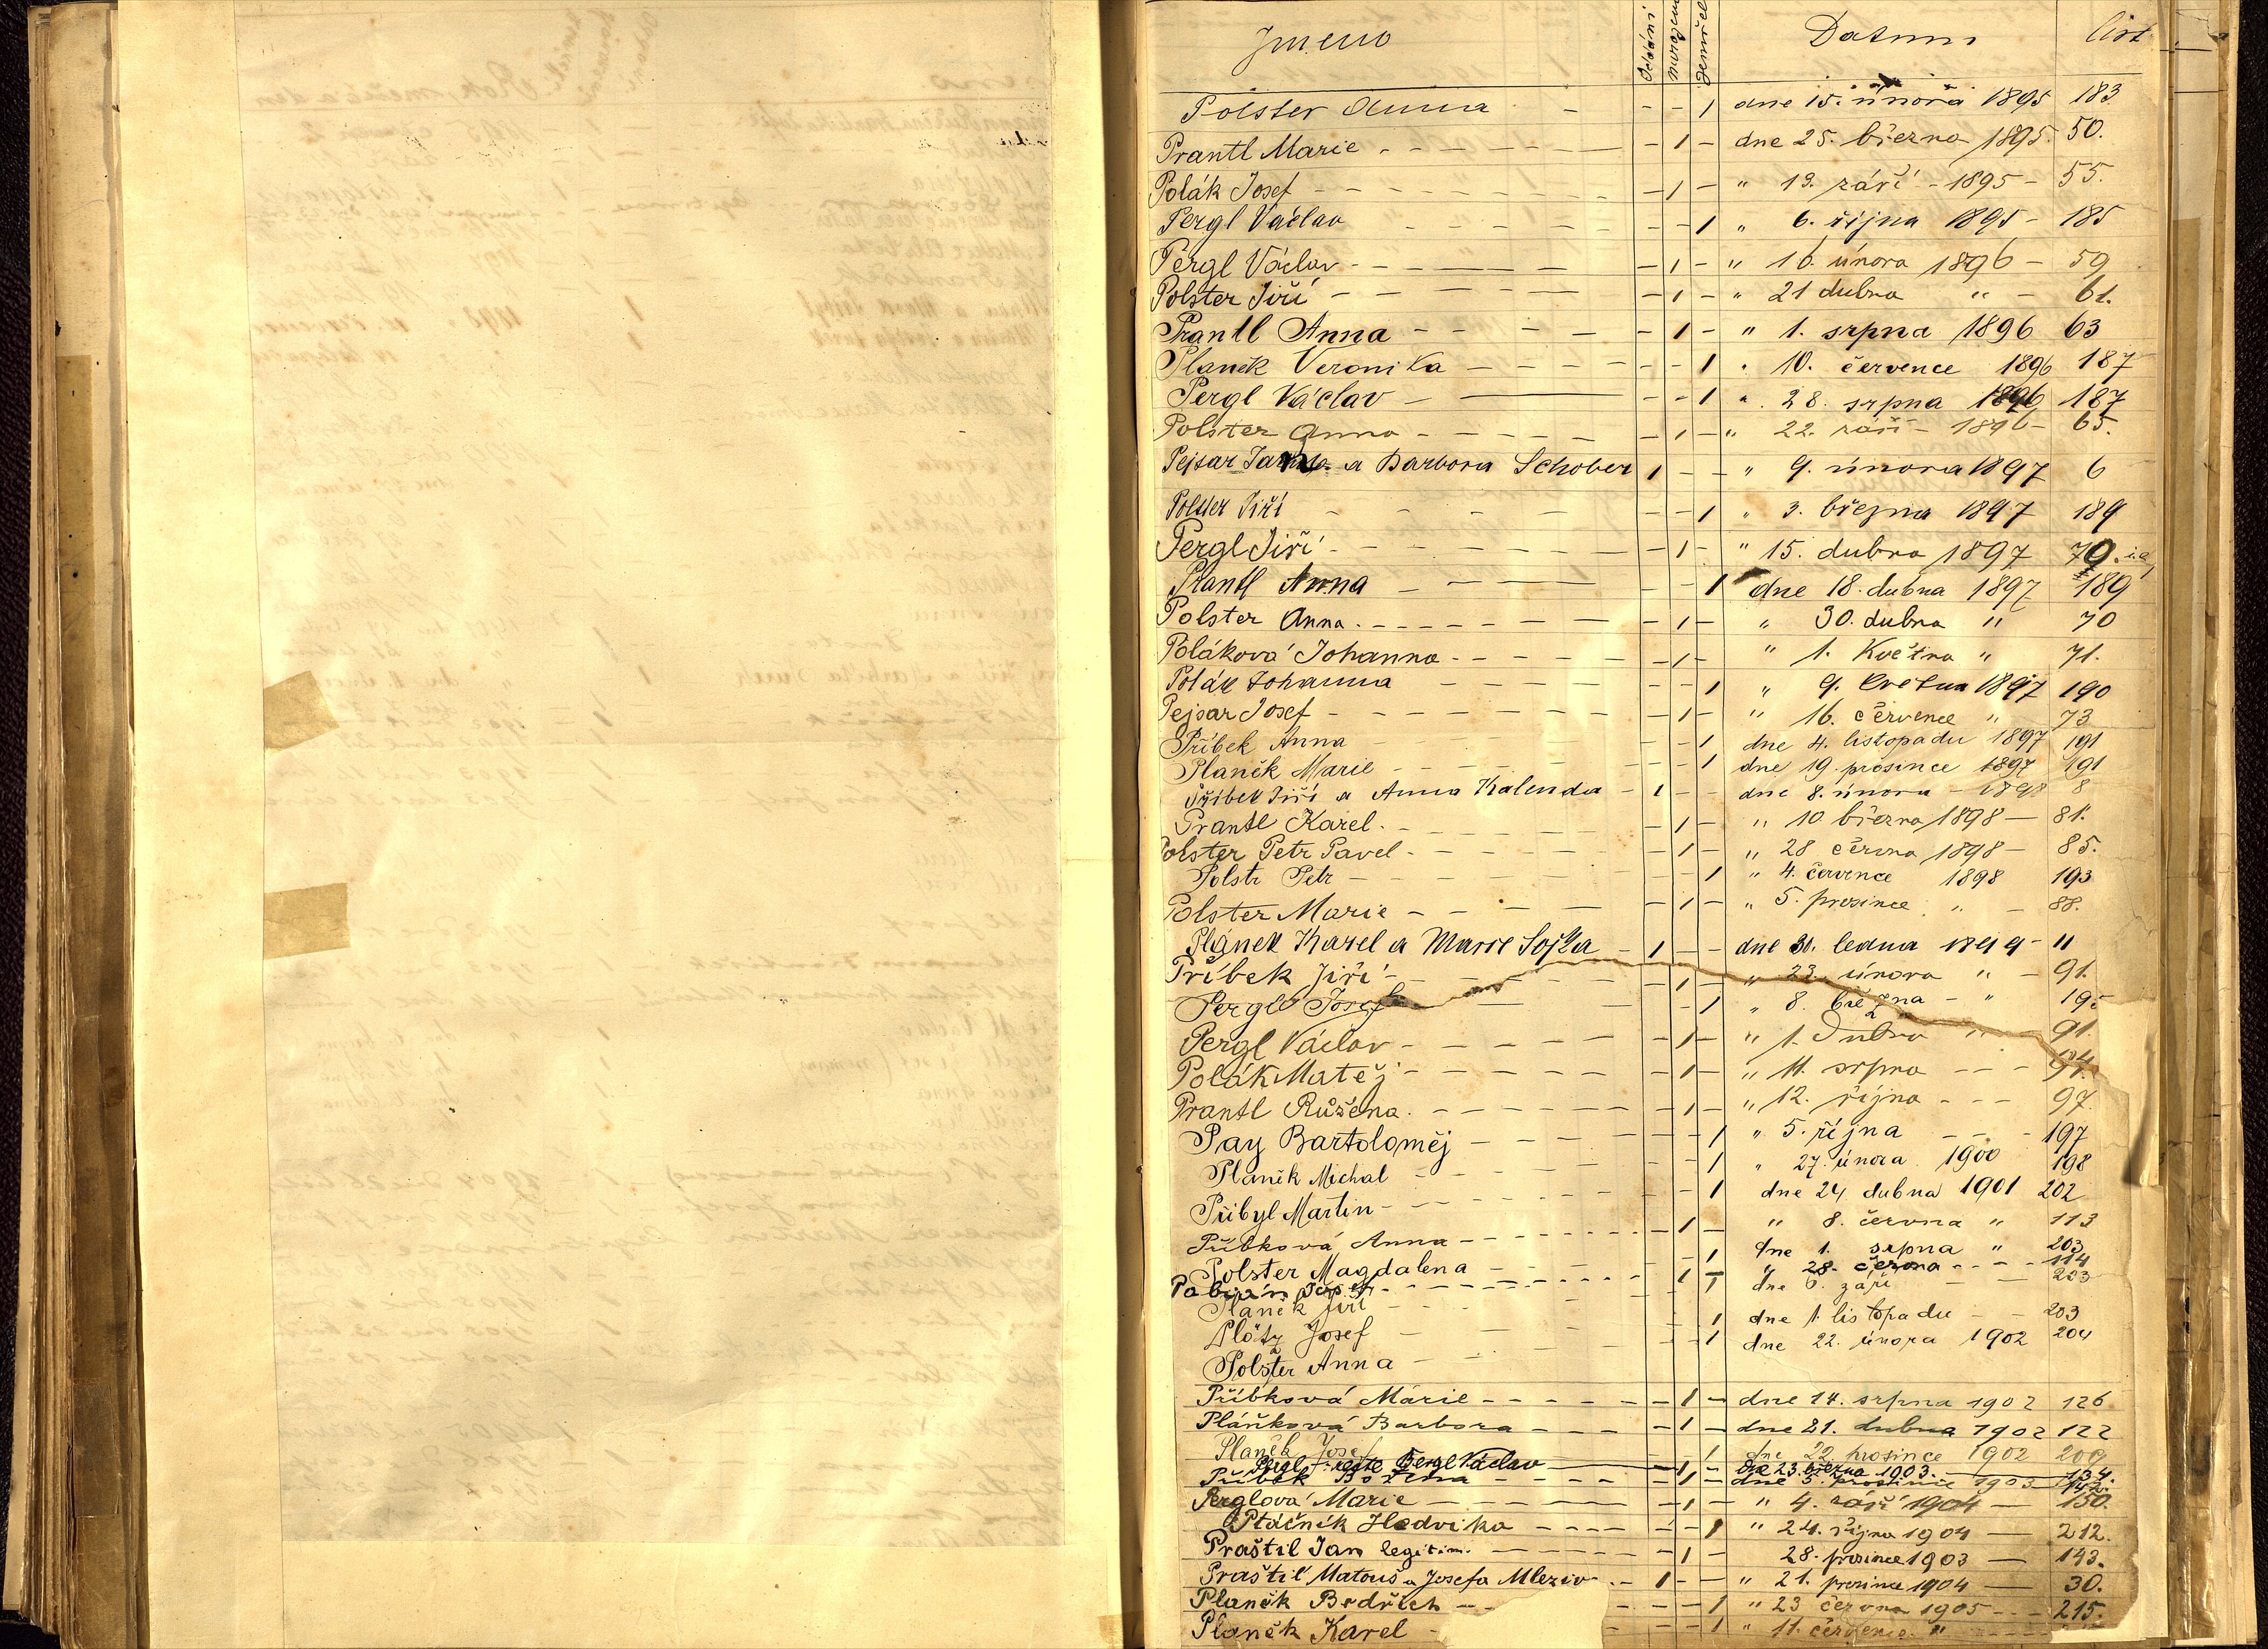 Jmeno Oddáni narozeni Zemřel Datum list
Polster Anna - - - 1 dne 15. února 1895 183
Prantl Marie - - - - - - - 1 - dne 25. března 1895. 50.
Polák Josef - - - - - - - 1 - " 13. září - 1895 - 55.
Pergl Václav - - - - - - - - 1 " 6. října 1895 - 185
Pergl Václav - - - - - - 1 - " 16. února 1896 - 59
Polster Jiří - - - - - - 1 - " 21 dubna " - 61.
Prantl Anna - - - - - 1 - " 1. srpna 1896 63
Planěk Veronika - - - - - - 1 " 10. července 1896 187
Pergl Václav - - - - 1 " 28. srpna 1896 187
Polster Anna - - - - - - 1 - " 22. září - 1896 - 65.
Pejsar a Barbora Schober 1 - - " 9. února 1897 6
Polster Jiří - - - - - - - 1 " 3. března 1897 189
Pergl Jiří - - - - - - - 1 - " 15. dubna 1897 70.
Prantl Anna - - - - 1 dne 18. dubna 1897 189
Polster Anna - - - - - - - 1 - " 30. dubna " 70
Poláková Johanna - - - - - - 1 - " 1. Května " 71.
Polák Johanna - - - - - - - 1 " 9. května 1897 190
Pejsar Josef - - - - - - - - 1 - " 16. července " 73
Příbek Anna - - - - - - - 1 dne 4. listopadu 1897 191
Planěk Marie - - - - - - 1 dne 19. prosince 1897 191
Příbek Jiří a Anna Kalenda - 1 - - dne 8. února - 1898 8
Prantl Karel. - - - - - - 1 - " 10 března 1898 - 81.
Polster Petr Pavel - - - - - - 1 - " 28 června 1898 - 85.
Polstr Petr - - - - - - - - 1 " 4. července 1898 193
Polster Marie - - - - - 1 - " 5. prosince " - 88.
Plánek Karel a Marie Sojka - 1 - - dne 30. ledna 1899 - 11
Příbek Jiří - - - 1 - " 23. února " - 91.
Pergl Josef - - 1 " 8. března - "
Pergl Václav - - - - - - - 1 - " 1. Dubna " 91.
Polák Matěj - - - - - - - 1 - " 11. srpna - - - 94.
Prantl Růžena. - - - - - - - 1 - " 12. října - - - 97.
Pay Bartoloměj - - - - - - - 1 " 5. října - - - 197
Planěk Michal - - - - - 1 " 27. února 1900 198
Přibyl Martin - - - - - - 1 dne 24. dubna 1901 202
Příbková Anna - - - - - - - 1 - " 8. června " 113
Polster Magdalena - - - - - 1 dne 1. srpna " 203
- - - - - - - 1 - " 28. června - - - 114
Planěk Jiří - - - - - 1 dne 6. září - - 203
Plötz Josef - - - - - 1 dne 1. listopadu - - 203
Polster Anna - - - - - 1 dne 22. února 1902 204
Příbková Marie - - - - - - 1 - dne 14. srpna 1902 126
Pláňková Barbora - - - - - 1 - dne 21. dubna 1902 122
Planěk Josef - 1 dne 22. prosince 1902 209
Pergl Václav - 1 - dne 23. března 1903. - 134.
Příbek Božena - - - - - - 1 - dne 5. prosince 1903 - 142.
Perglová Marie - - - - - - - 1 - " 4. září 1904 - 150.
Ptáčník Hedvika - - - - - - 1 " 24. října 1904 - 212.
Praštil Jan legitim. - - - - - - 1 - 28. prosince 1903 - 143.
Praštil Matouš a Josefa Mleziva. - 1 - - " 21. prosince 1904 - 30.
Planěk Bedřich - - - - 1 " 23 června 1905 - - - 215.
Planěk Karel - - - 1 " 11. července "